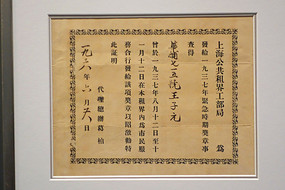 上海公共租界工部局 為
發給一九三七年緊急時期獎章事
查得
五號王子元
曾於一九三七年八月十二日至十
一月十二日在本租界內為市民服
務合行發給該項獎章以昭激勵特
此證明
代理總辦
一九三八年 月 日